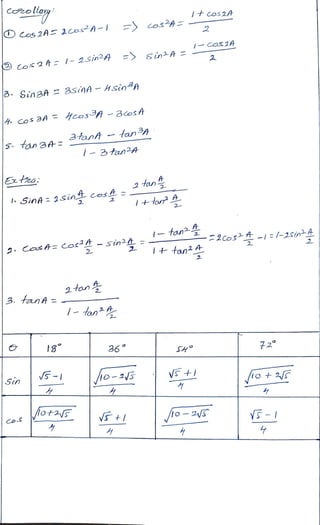 Corollory:
① Cos2A = 2cos²A-1 => cos²A = (1+cos2A)/2
② cos2A = 1-2sin²A => sin²A = (1-cos2A)/2
3. Sin3A = 3sinA - 4sin³A
4. cos3A = 4cos³A - 3cosA
5. tan3A = (3tanA - tan³A)/(1-3tan²A)
Extra:
1. SinA = 2sin A/2 cos A/2 = (2tan A/2)/(1+tan² A/2)
2. CosA = Cos² A/2 - sin² A/2 = (1-tan² A/2)/(1+tan² A/2) = 2cos² A/2 -1 = 1-2sin² A/2
3. tanA = (2tan A/2)/(1-tan² A/2)
θ 18° 36° 54° 72°
Sin (√5-1)/4 √(10-2√5)/4 (√5+1)/4 √(10+2√5)/4
cos √(10+2√5)/4 (√5+1)/4 √(10-2√5)/4 (√5-1)/4